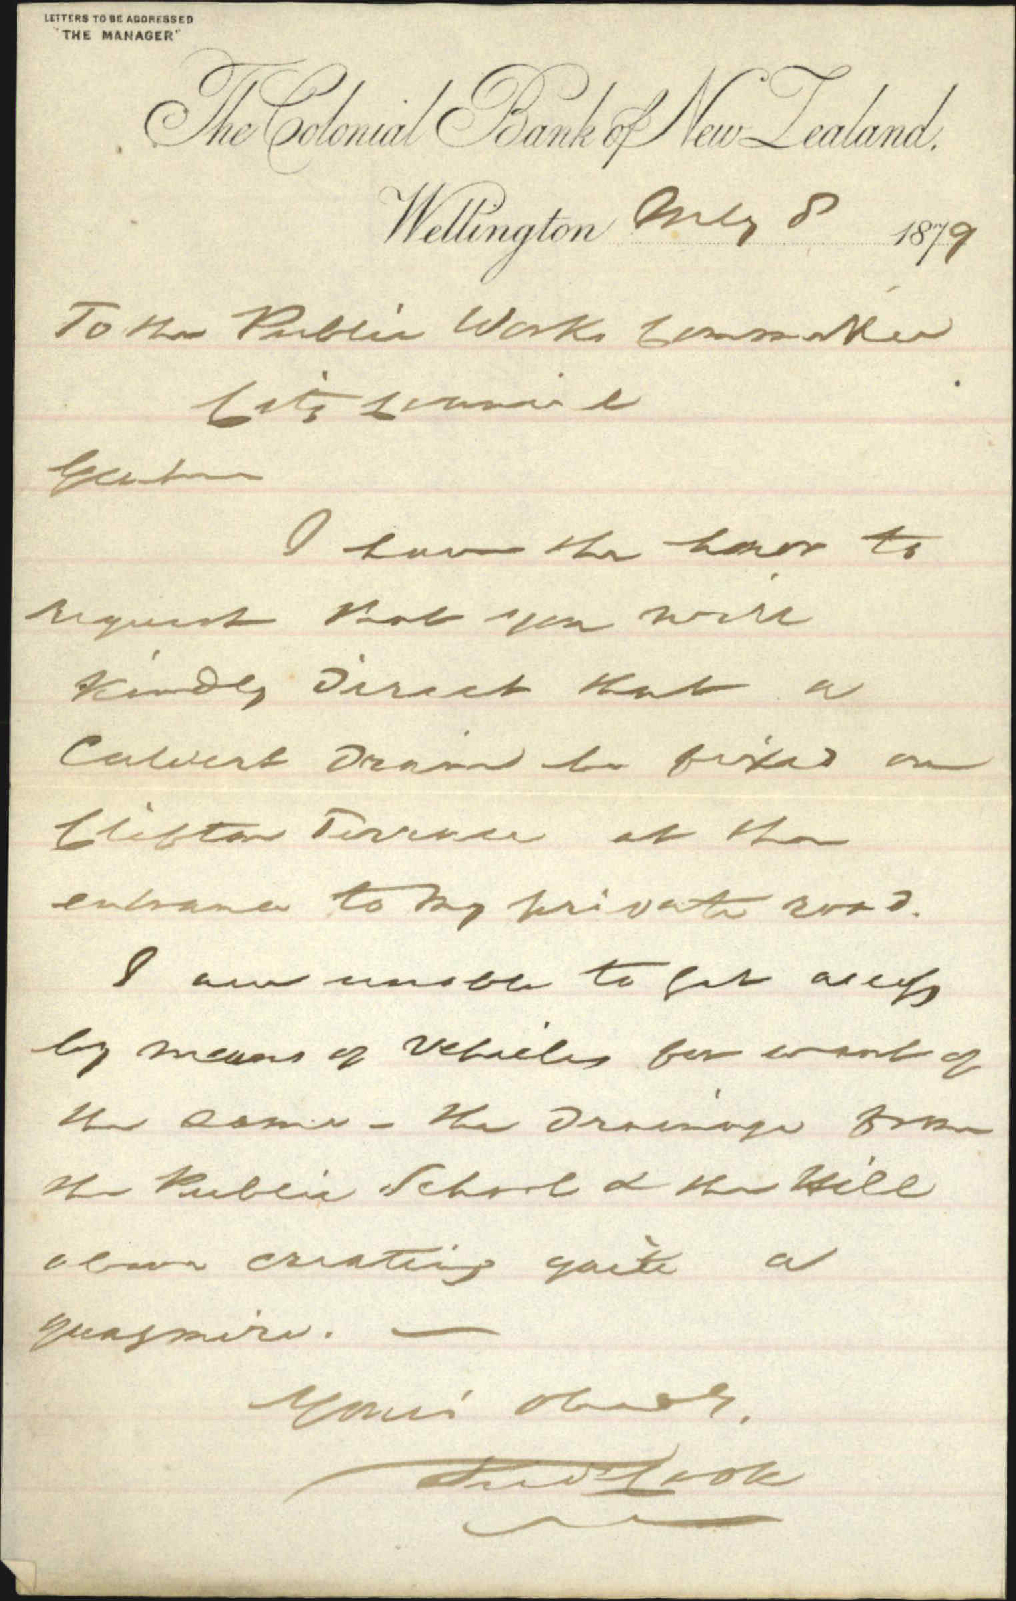 LETTERS TO BE ADDRESSED
"THE MANAGER"
The Colonial Bank of New Zealand.
Wellington July 8 1879
To the Public Works Committee
City Council
Gentmn
I have the honor to
request that you will
kindly direct that a
Culvert Drain be fixed on
Clifton Terrace at the
entrance to my private road.
I am unable to get access
by means of vehicles for want of
the same - the drainage from
the Public School & the Hill
above creating quite a
quagmire. —
Yours obedly.
Cook